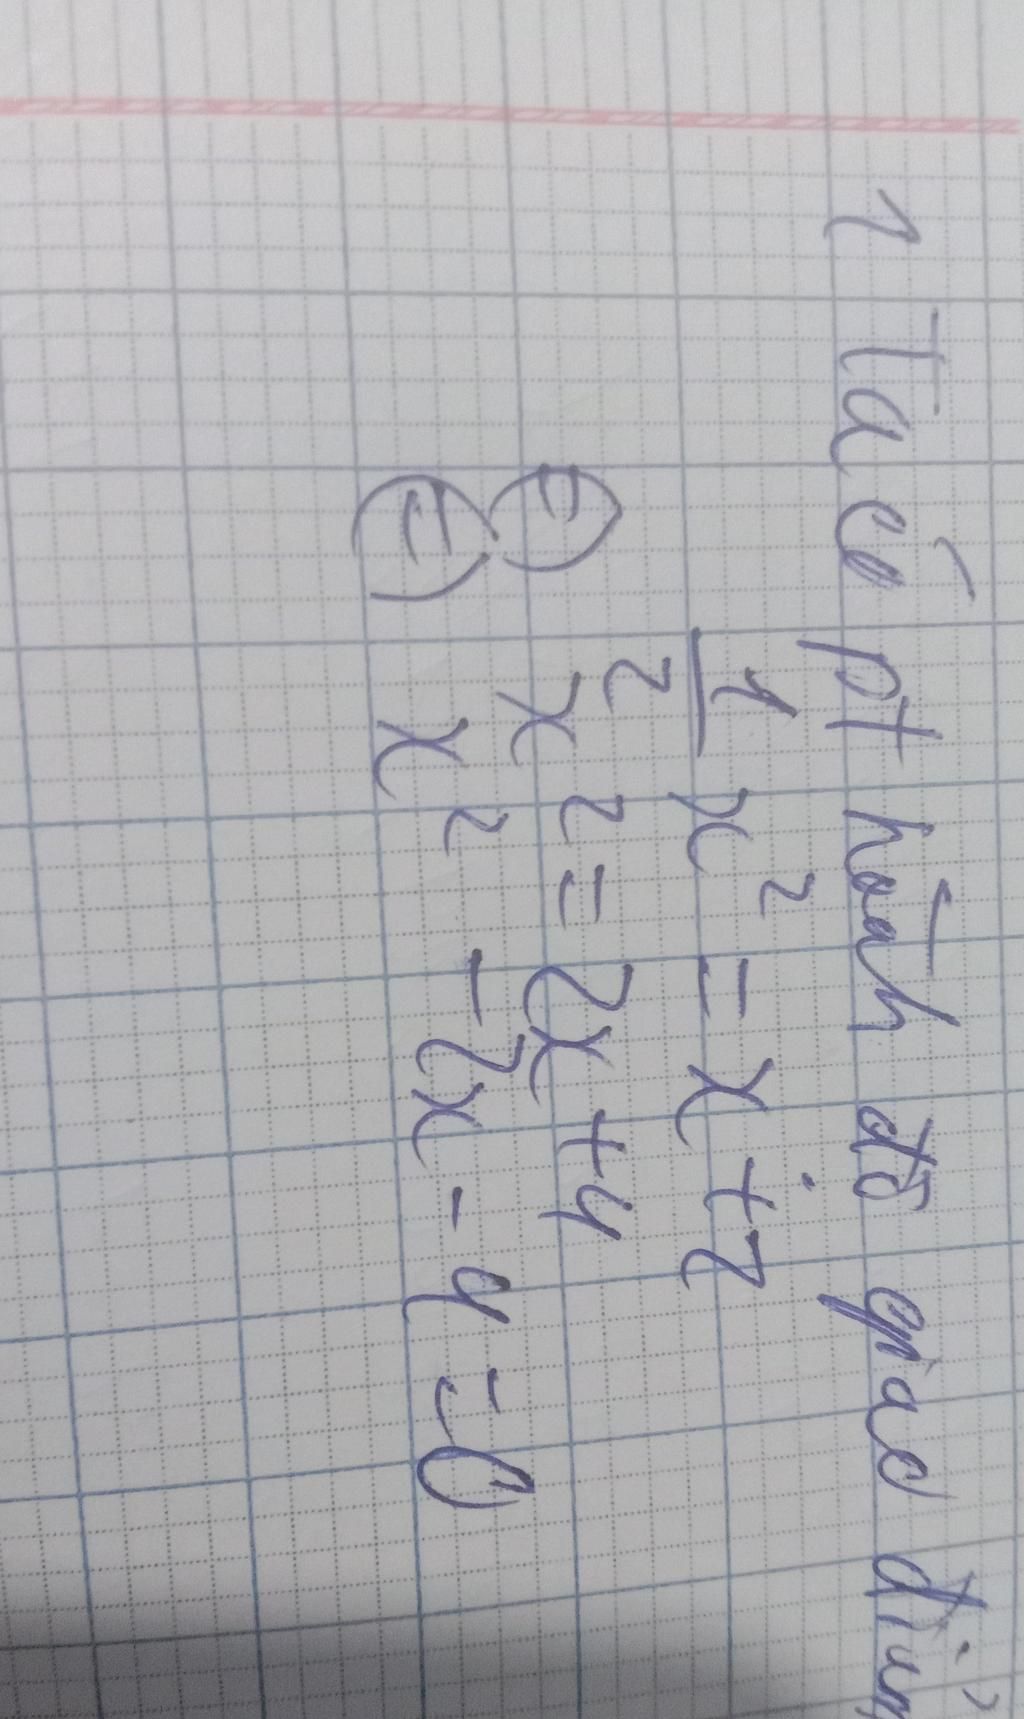 1 Ta có pt hoành độ giao điểm
1/2 x² = x + 2
⇔ x² = 2x + 4
⇔ x² - 2x - 4 = 0